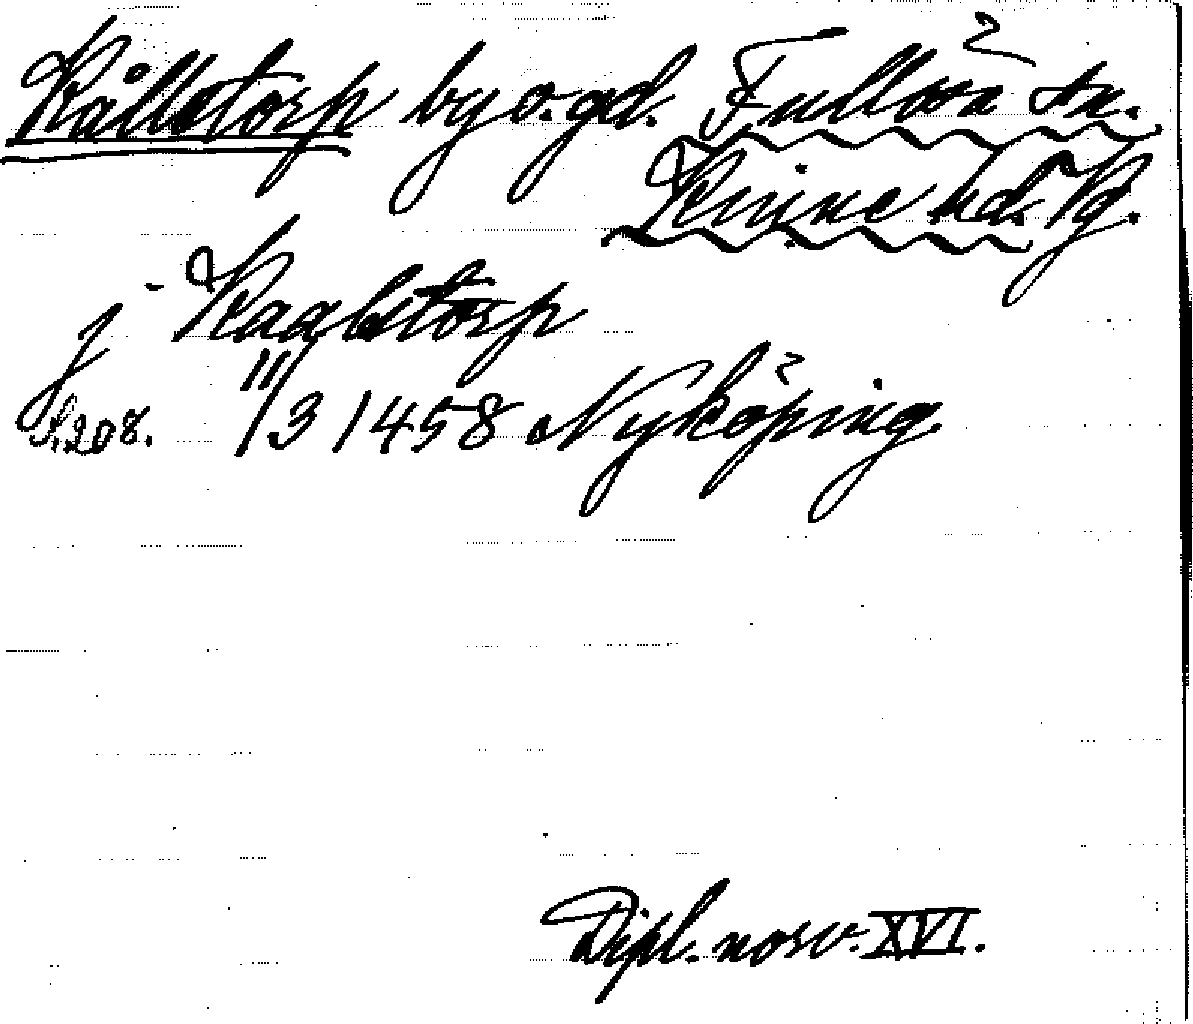 Kållstorp by o. gd. Fullösa sn.
Kinne hd. Vg.
j Kaalstorp
S. 208. 11/3 1458 Nyköping.
Dipl. norv. XVI.